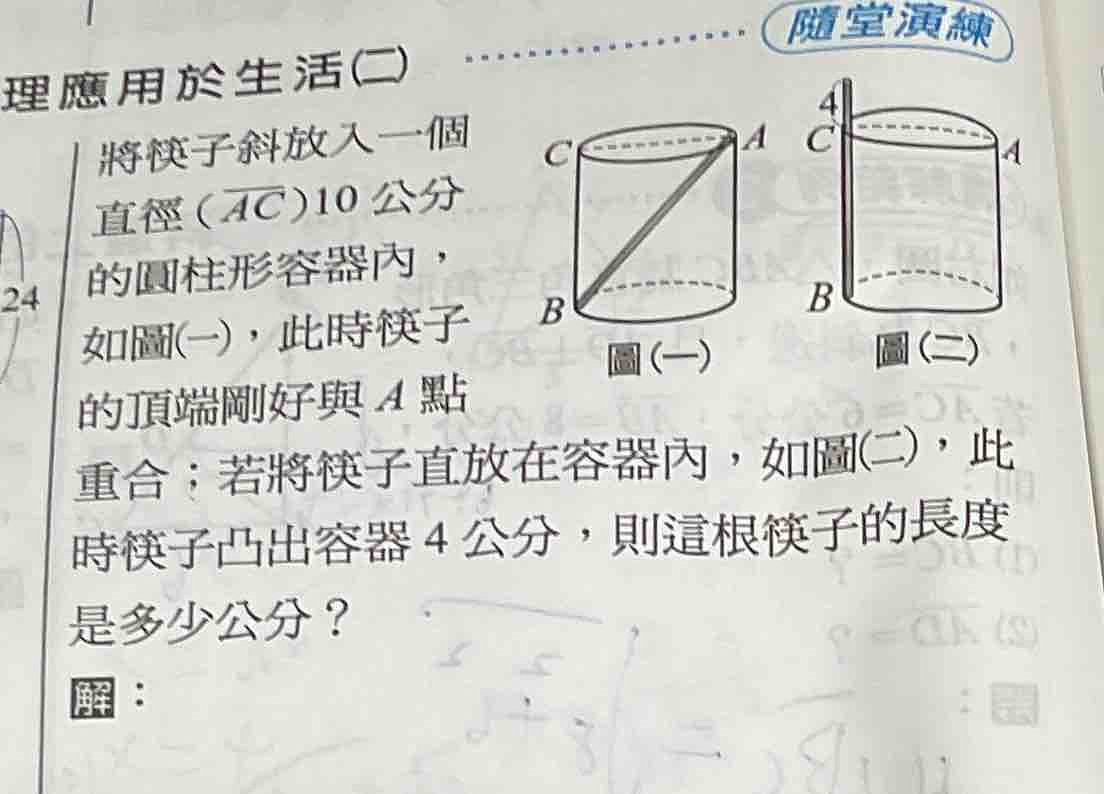 隨堂演練
理應用於生活(二)
將筷子斜放入一個
直徑(AC)10公分
的圓柱形容器內，
24
如圖(一)，此時筷子
的頂端剛好與A點
重合；若將筷子直放在容器內，如圖(二)，此
時筷子凸出容器4公分，則這根筷子的長度
是多少公分？
解：
C
A
B
圖(一)
4
C
A
B
圖(二)